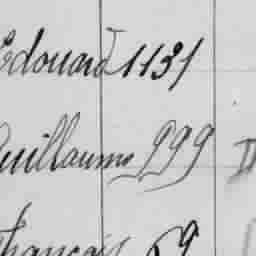 Edouard 1131
Guillaume 999
François 69